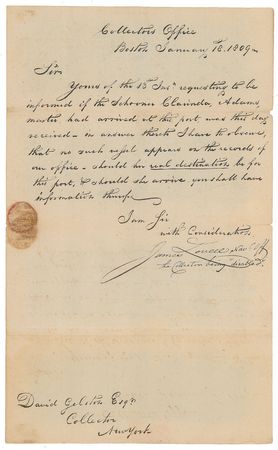 Collectors Office
Boston January 18. 1809
Sir
Yours of the 13 Inst requesting to be
informed if the Schooner Clarinda, Adams
master had arrived at this port was this day
received - in answer I have to observe,
that no such vessel appears on the records of
our office - should her real destination be for
this port, & should she arrive you shall have
information thereof
I am Sir
with Consideration
James Lovell Nav. Off
the Collector being disabled
David Gelston Esqr
Collector
New York